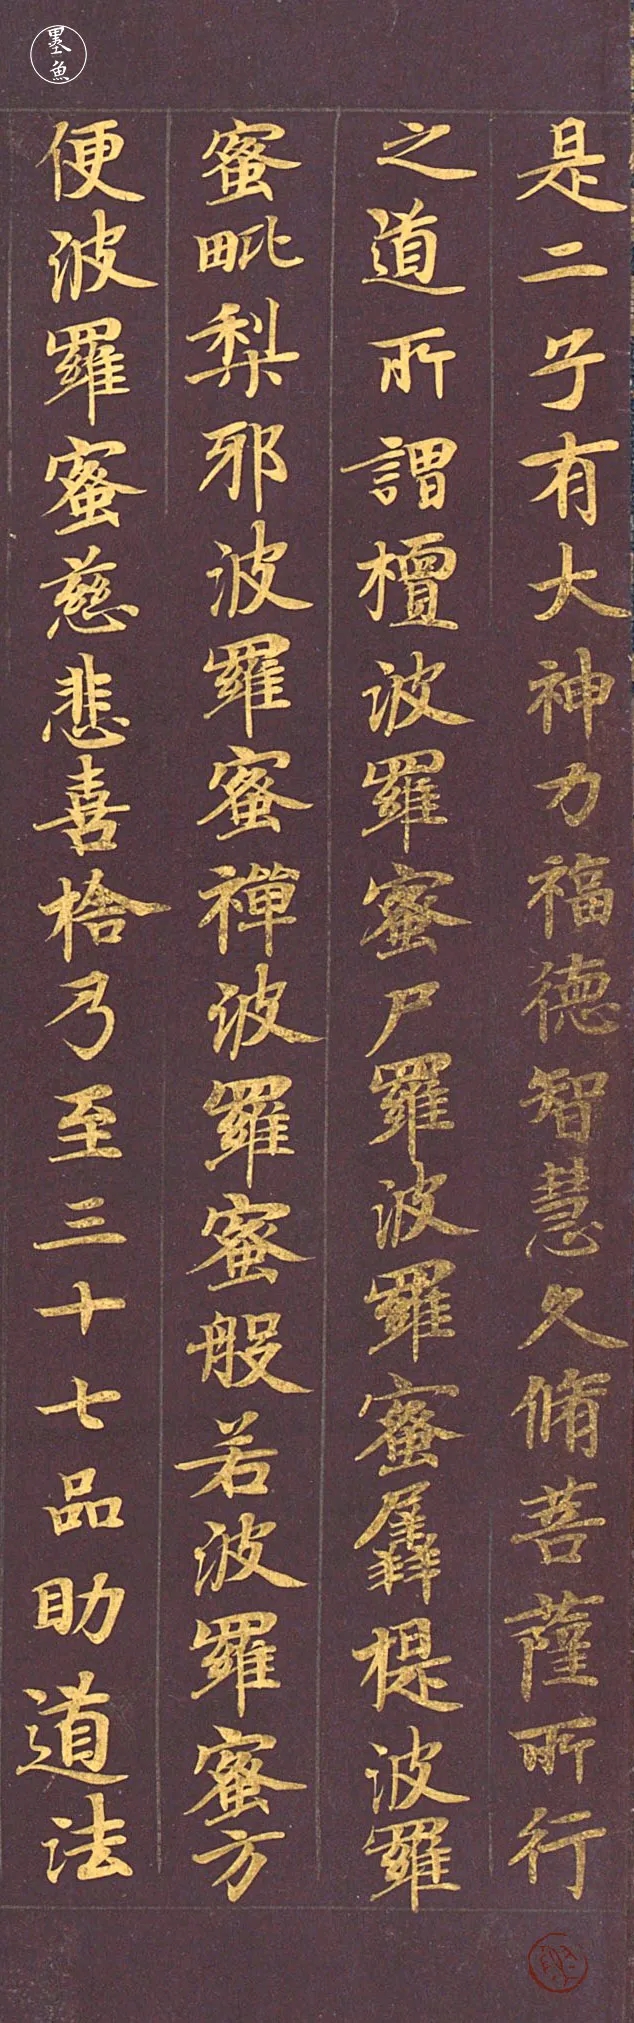 墨魚
是二子有大神力福德智慧久脩菩薩所行
之道所謂檀波羅蜜尸羅波羅蜜羼提波羅
蜜毗梨邪波羅蜜禪波羅蜜般若波羅蜜方
便波羅蜜慈悲喜捨乃至三十七品助道法